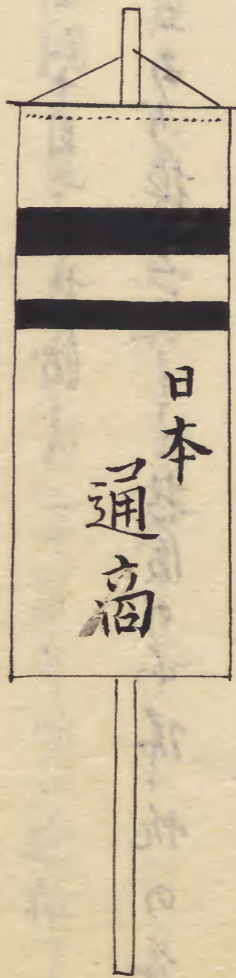 日本
通商